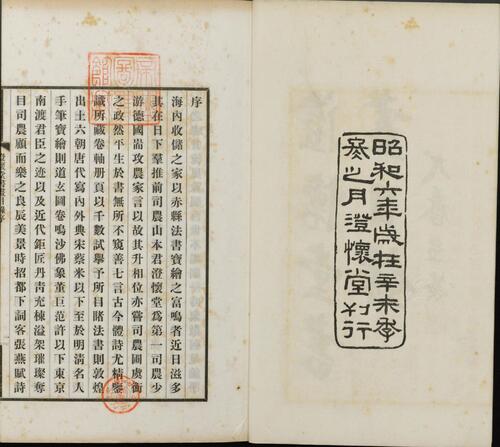 昭和六年歲在辛未季
冬之月澄懷堂刊行
序
海內收儲之家以赤縣法書寶繪之富鳴者近日滋多
其在日下羣推前司農山本君澄懷堂爲第一司農少
游德國嵓攻農家言以故其升相位亦嘗司農圃虞衡
之政然平生於書無所不窺善七言古今體詩尤精鑒
識所藏卷軸册頁以千數試舉予所目睹法書則敦煌
出土六朝唐代寫內外典宋蔡米以下至於明清名人
手筆寶繪則道玄圖卷鳴沙佛象董巨范許以下東京
南渡君臣之迹以及近代鉅匠丹青充棟溢架璀璨奪
目司農顧而樂之良辰美景時招都下詞客張燕賦詩